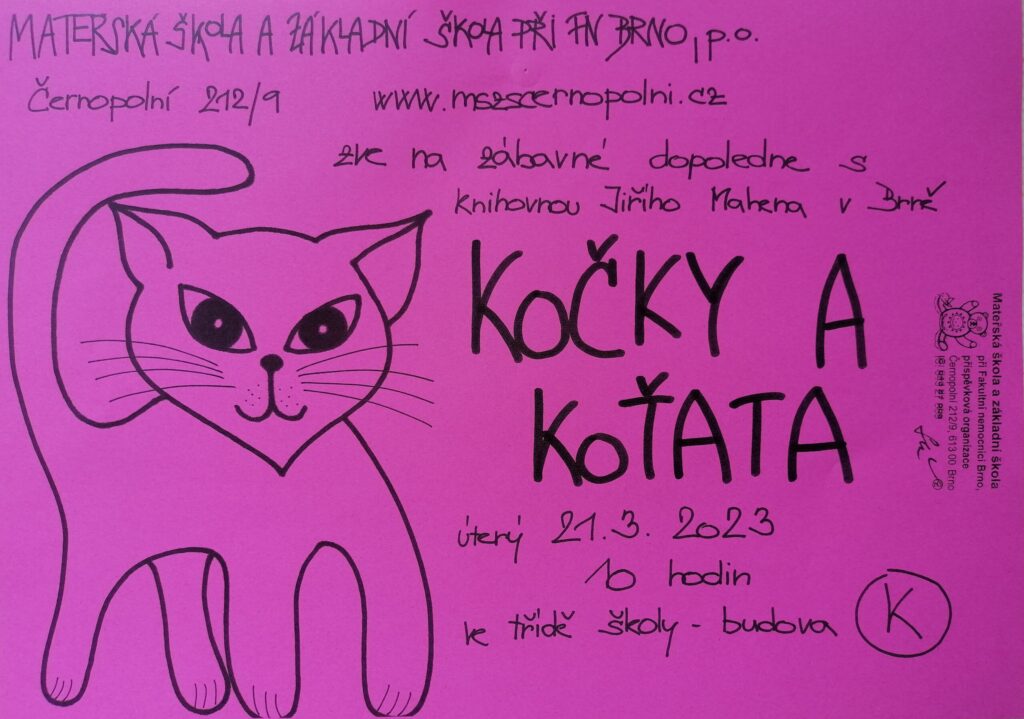 MATEŘSKÁ ŠKOLA A ZÁKLADNÍ ŠKOLA PŘI FN BRNO, p.o.
Černopolní 212/9 www.mszscernopolni.cz
zve na zábavné dopoledne s
knihovnou Jiřího Mahena v Brně
KOČKY A
KOŤATA
úterý 21.3. 2023
10 hodin
ve třídě školy - budova K
Mateřská škola a základní škola
při Fakultní nemocnici Brno,
příspěvková organizace
Černopolní 212/9, 613 00 Brno